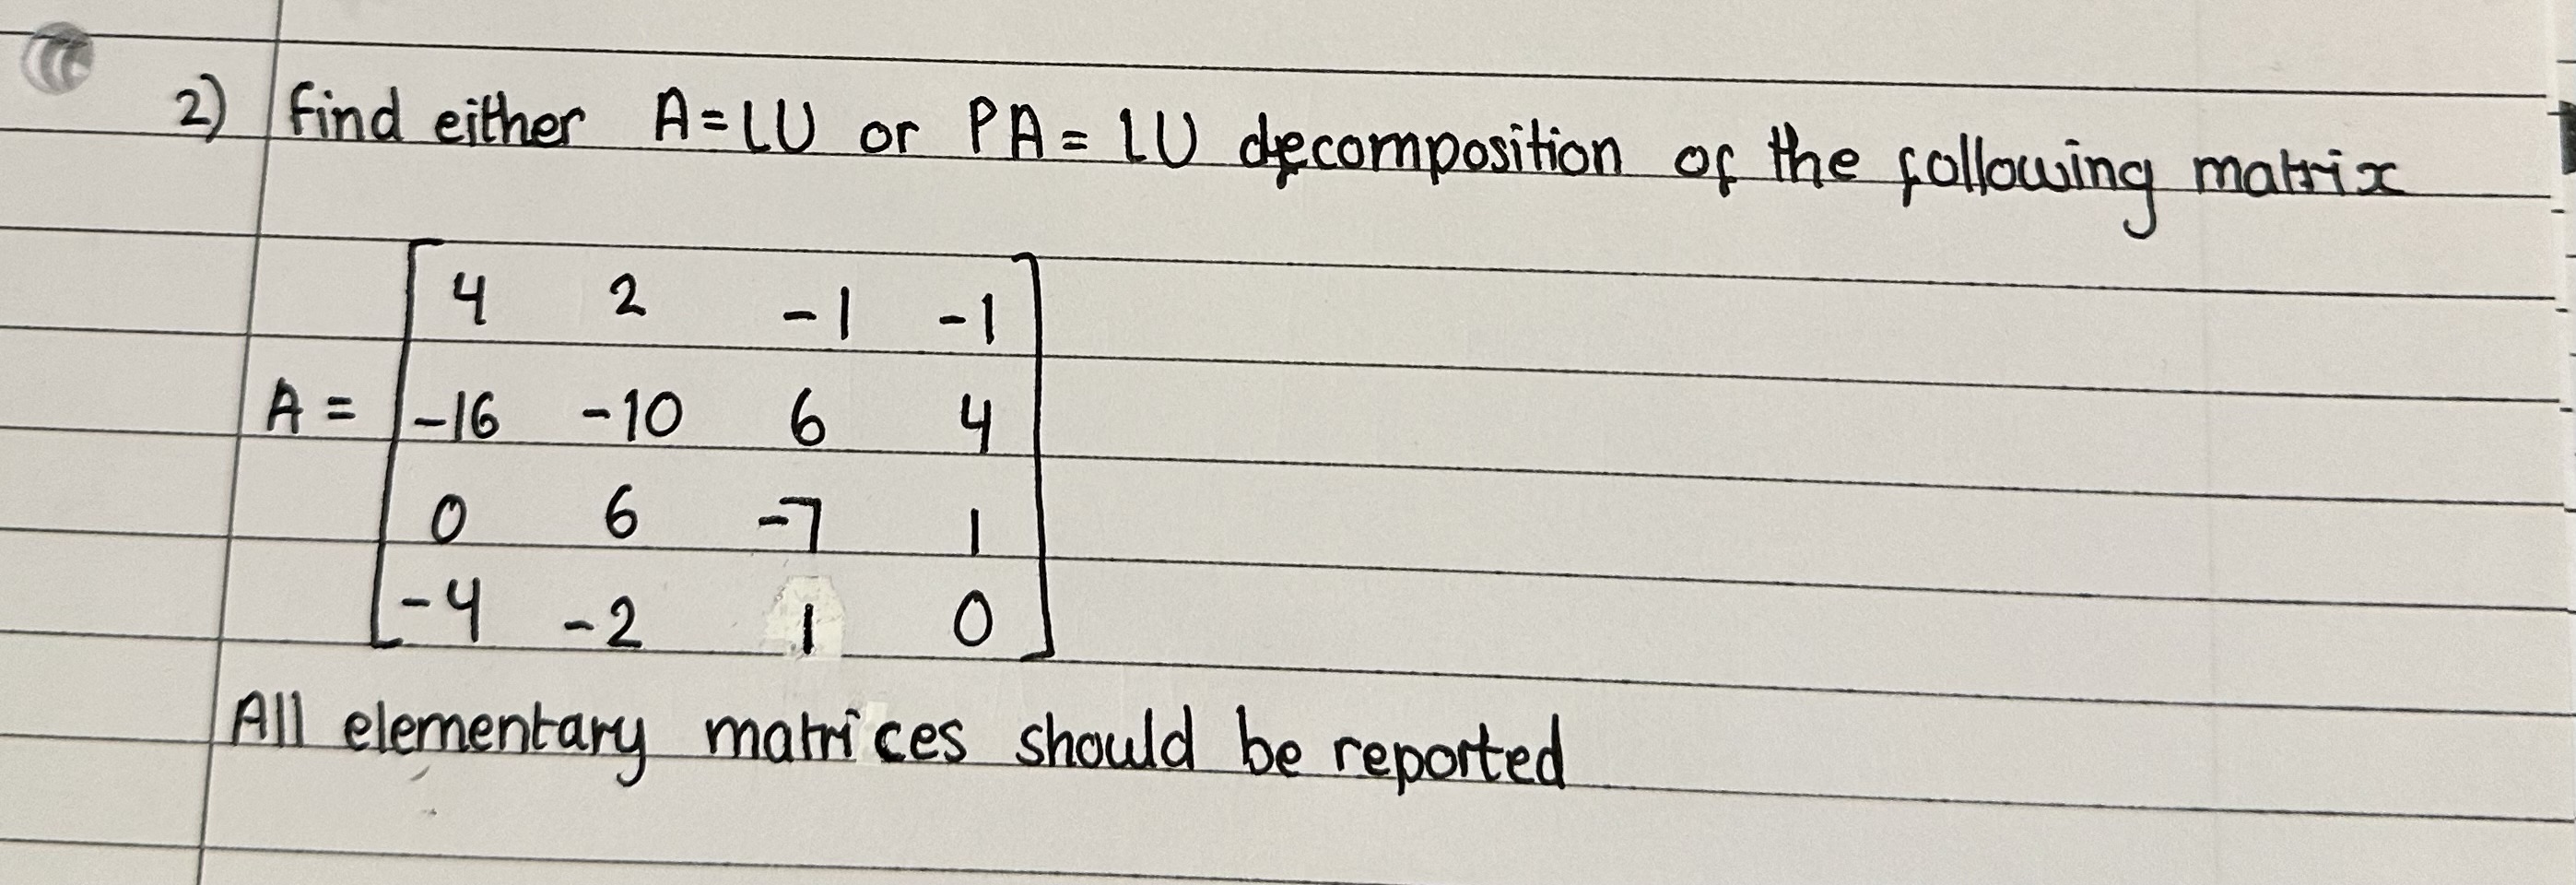 2) find either A=LU or PA=LU decomposition of the following matrix
4 2 -1 -1
A= -16 -10 6 4
0 6 -7 1
-4 -2 1 0
All elementary matrices should be reported